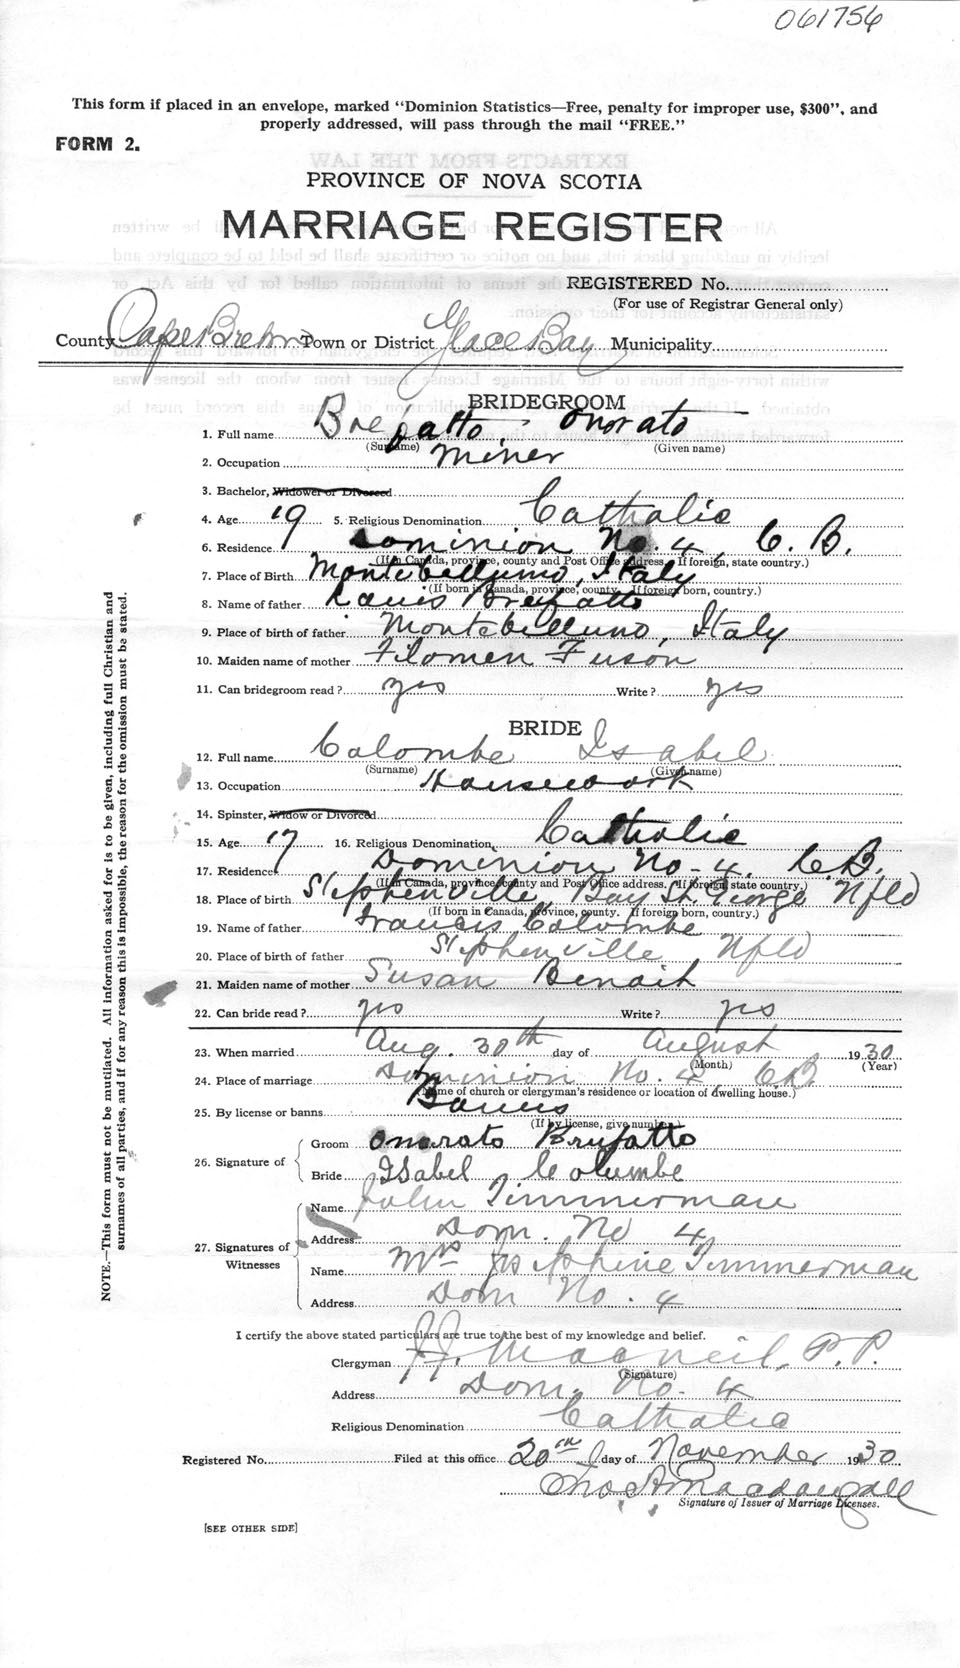 061756
This form if placed in an envelope, marked "Dominion Statistics—Free, penalty for improper use, $300", and
properly addressed, will pass through the mail "FREE."
FORM 2.
PROVINCE OF NOVA SCOTIA
MARRIAGE REGISTER
REGISTERED No.
(For use of Registrar General only)
County Cape Breton Town or District Glace Bay Municipality
BRIDEGROOM
1. Full name Brefatto, Onorato
(Surname) (Given name)
2. Occupation Miner
3. Bachelor, Widower or Divorced
4. Age 19 5. Religious Denomination Catholic
6. Residence Dominion No. 4, C. B.
(If in Canada, province, county and Post Office address. If foreign, state country.)
7. Place of Birth Montebelluno, Italy
(If born in Canada, province, county. If foreign born, country.)
8. Name of father Louis Brefatto
9. Place of birth of father Montebelluno, Italy
10. Maiden name of mother Filomen Fuson
11. Can bridegroom read? yes Write? yes
BRIDE
12. Full name Colombe Isabel
(Surname) (Given name)
13. Occupation Housework
14. Spinster, Widow or Divorced
15. Age 17 16. Religious Denomination Catholic
17. Residence Dominion No. 4, C.B.
(If in Canada, province, county and Post Office address. If foreign, state country.)
18. Place of birth Stephenville Bay St. George Nfld
(If born in Canada, province, county. If foreign born, country.)
19. Name of father Francis Colombe
20. Place of birth of father Stephenville Nfld
21. Maiden name of mother Susan Benoit
22. Can bride read? yes Write? yes
23. When married Aug. 30th day of August 1930
(Month) (Year)
24. Place of marriage Dominion No. 4, C.B.
(Name of church or clergyman's residence or location of dwelling house.)
25. By license or banns Banns
(If by license, give number)
26. Signature of Groom Onorato Brufatto
Bride Isabel Colombe
27. Signatures of Witnesses
Name John Timmerman
Address Dom. No 4
Name Mrs Josephine Timmerman
Address Dom No. 4
I certify the above stated particulars are true to the best of my knowledge and belief.
Clergyman J. J. MacNeil, P.P.
(Signature)
Address Dom. No. 4
Religious Denomination Catholic
Registered No. Filed at this office 20th day of November 1930
Thos A Macdougall
Signature of Issuer of Marriage Licenses.
[SEE OTHER SIDE]
NOTE.—This form must not be mutilated. All information asked for is to be given, including full Christian and
surnames of all parties, and if for any reason this is impossible, the reason for the omission must be stated.